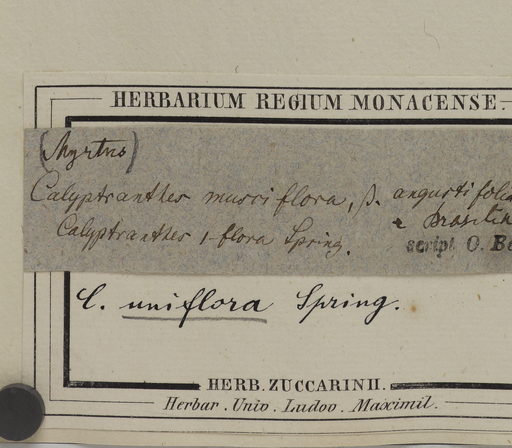 HERBARIUM REGIUM MONACENSE.
(Myrtus)
Calyptranthes musciflora, β. angustifolia
e Brasilia
Calyptranthes 1-flora Spring.
script. O. Be
C. uniflora Spring.
HERB. ZUCCARINII.
Herbar. Univ. Ludov. Maximil.